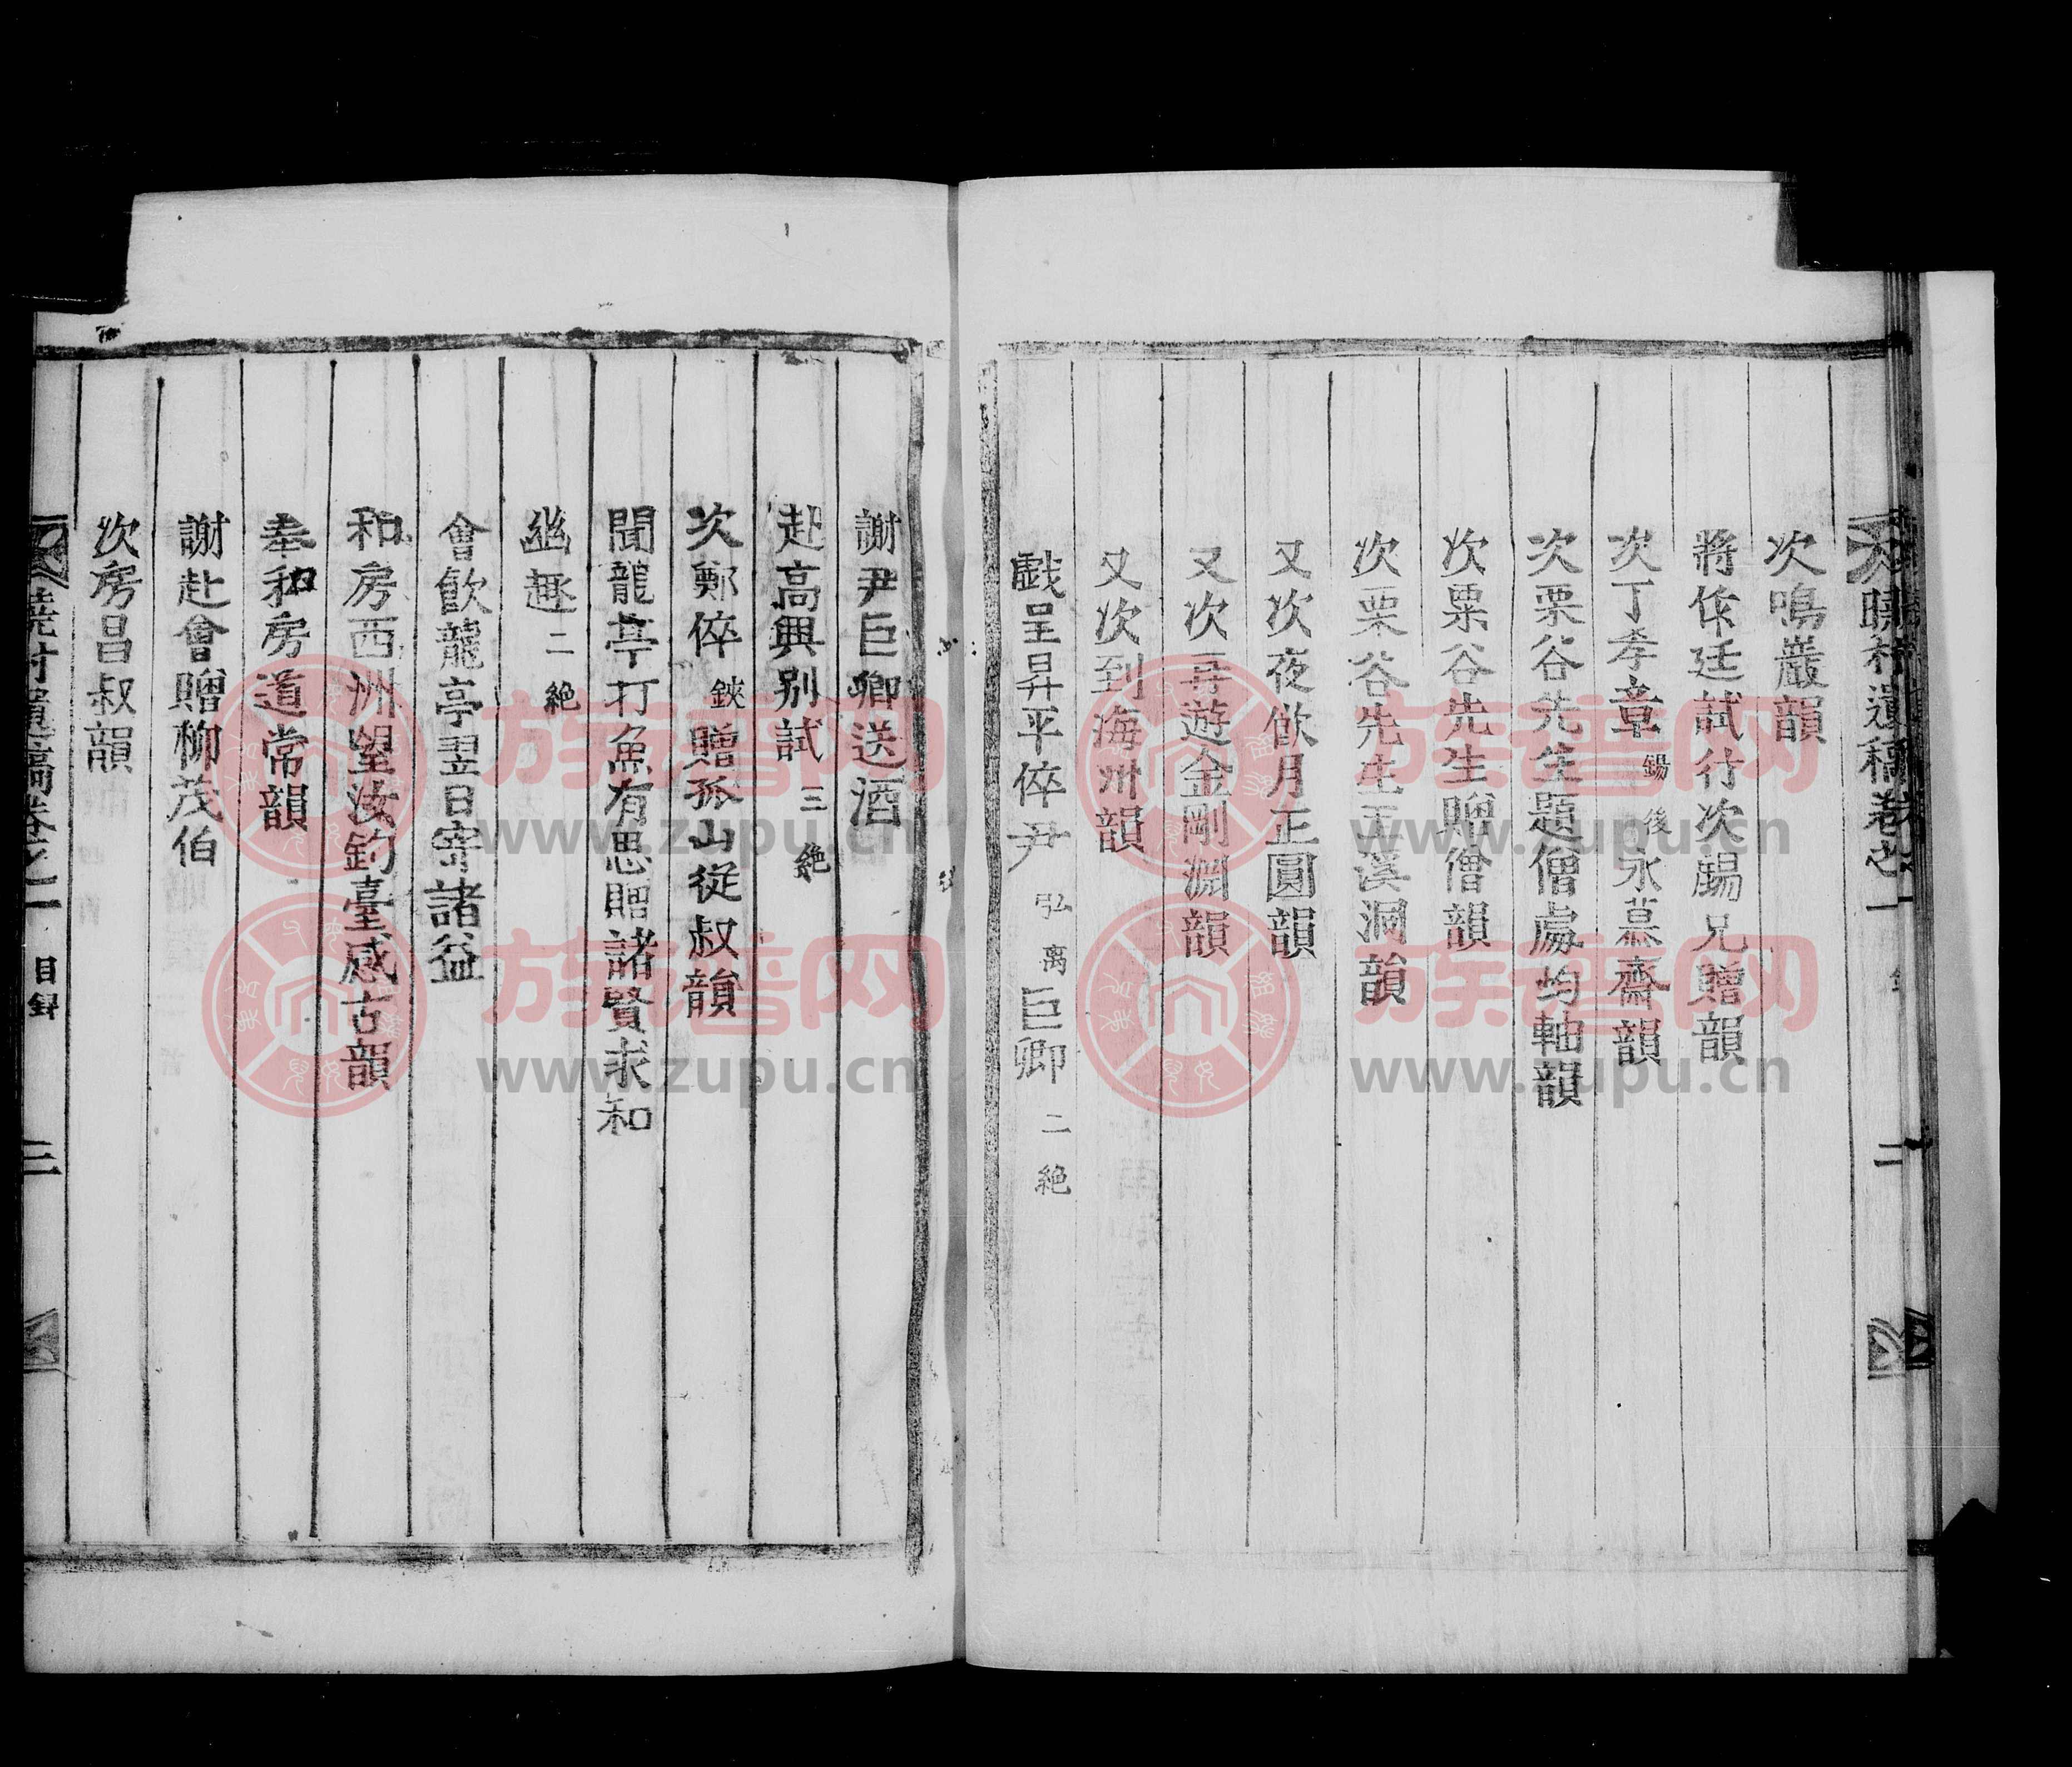 曉村遺稿卷之一
二
次鳴巖韻
將作廷試行次賜兄贈韻
次丁孝章錫後永慕齋韻
次栗谷先生題僧處均軸韻
次栗谷先生贈僧韻
次栗谷先生玉溪洞韻
又次夜僚月正圓韻
又次再遊金剛淵韻
又次到海州韻
戲呈昇平倅尹弘离巨卿二絶
謝尹巨卿送酒
赴高興別試三絶
次鄭倅鋏贈孤山從叔韻
聞龍亭打魚有思贈諸賢求和
幽趣二絶
會飮龍亭翌日寄諸益
和房西洲望汝釣臺感古韻
奉和房道常韻
謝赴會贈柳茂伯
次房昌叔韻
曉村遺稿卷之一
目錄
三
族譜网
www.zupu.cn
族譜网
www.zupu.cn
族譜网
www.zupu.cn
族譜网
www.zupu.cn